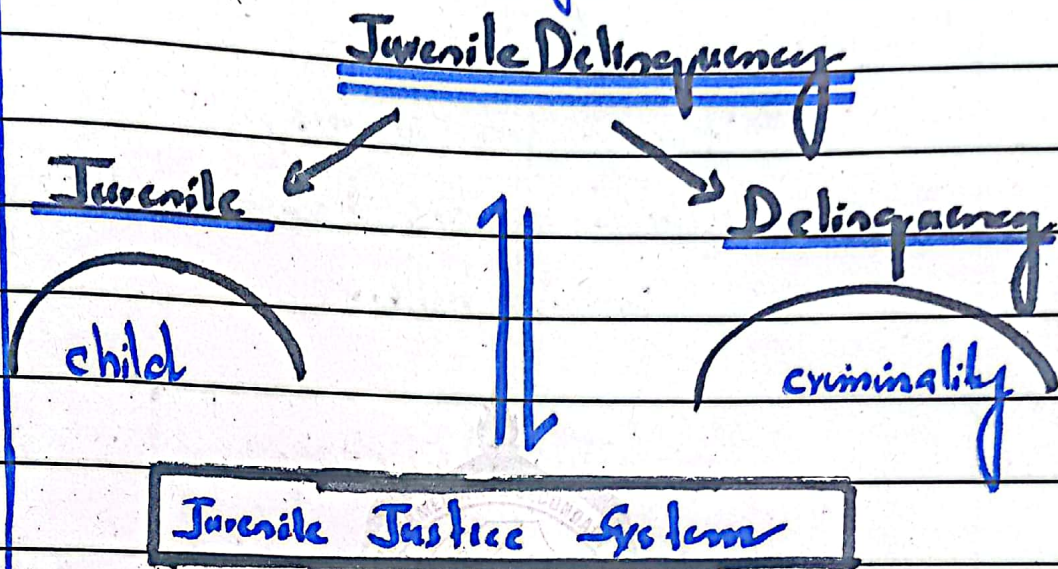 Juvenile Delinquency
Juvenile
Delinquency
child
criminality
Juvenile Justice System